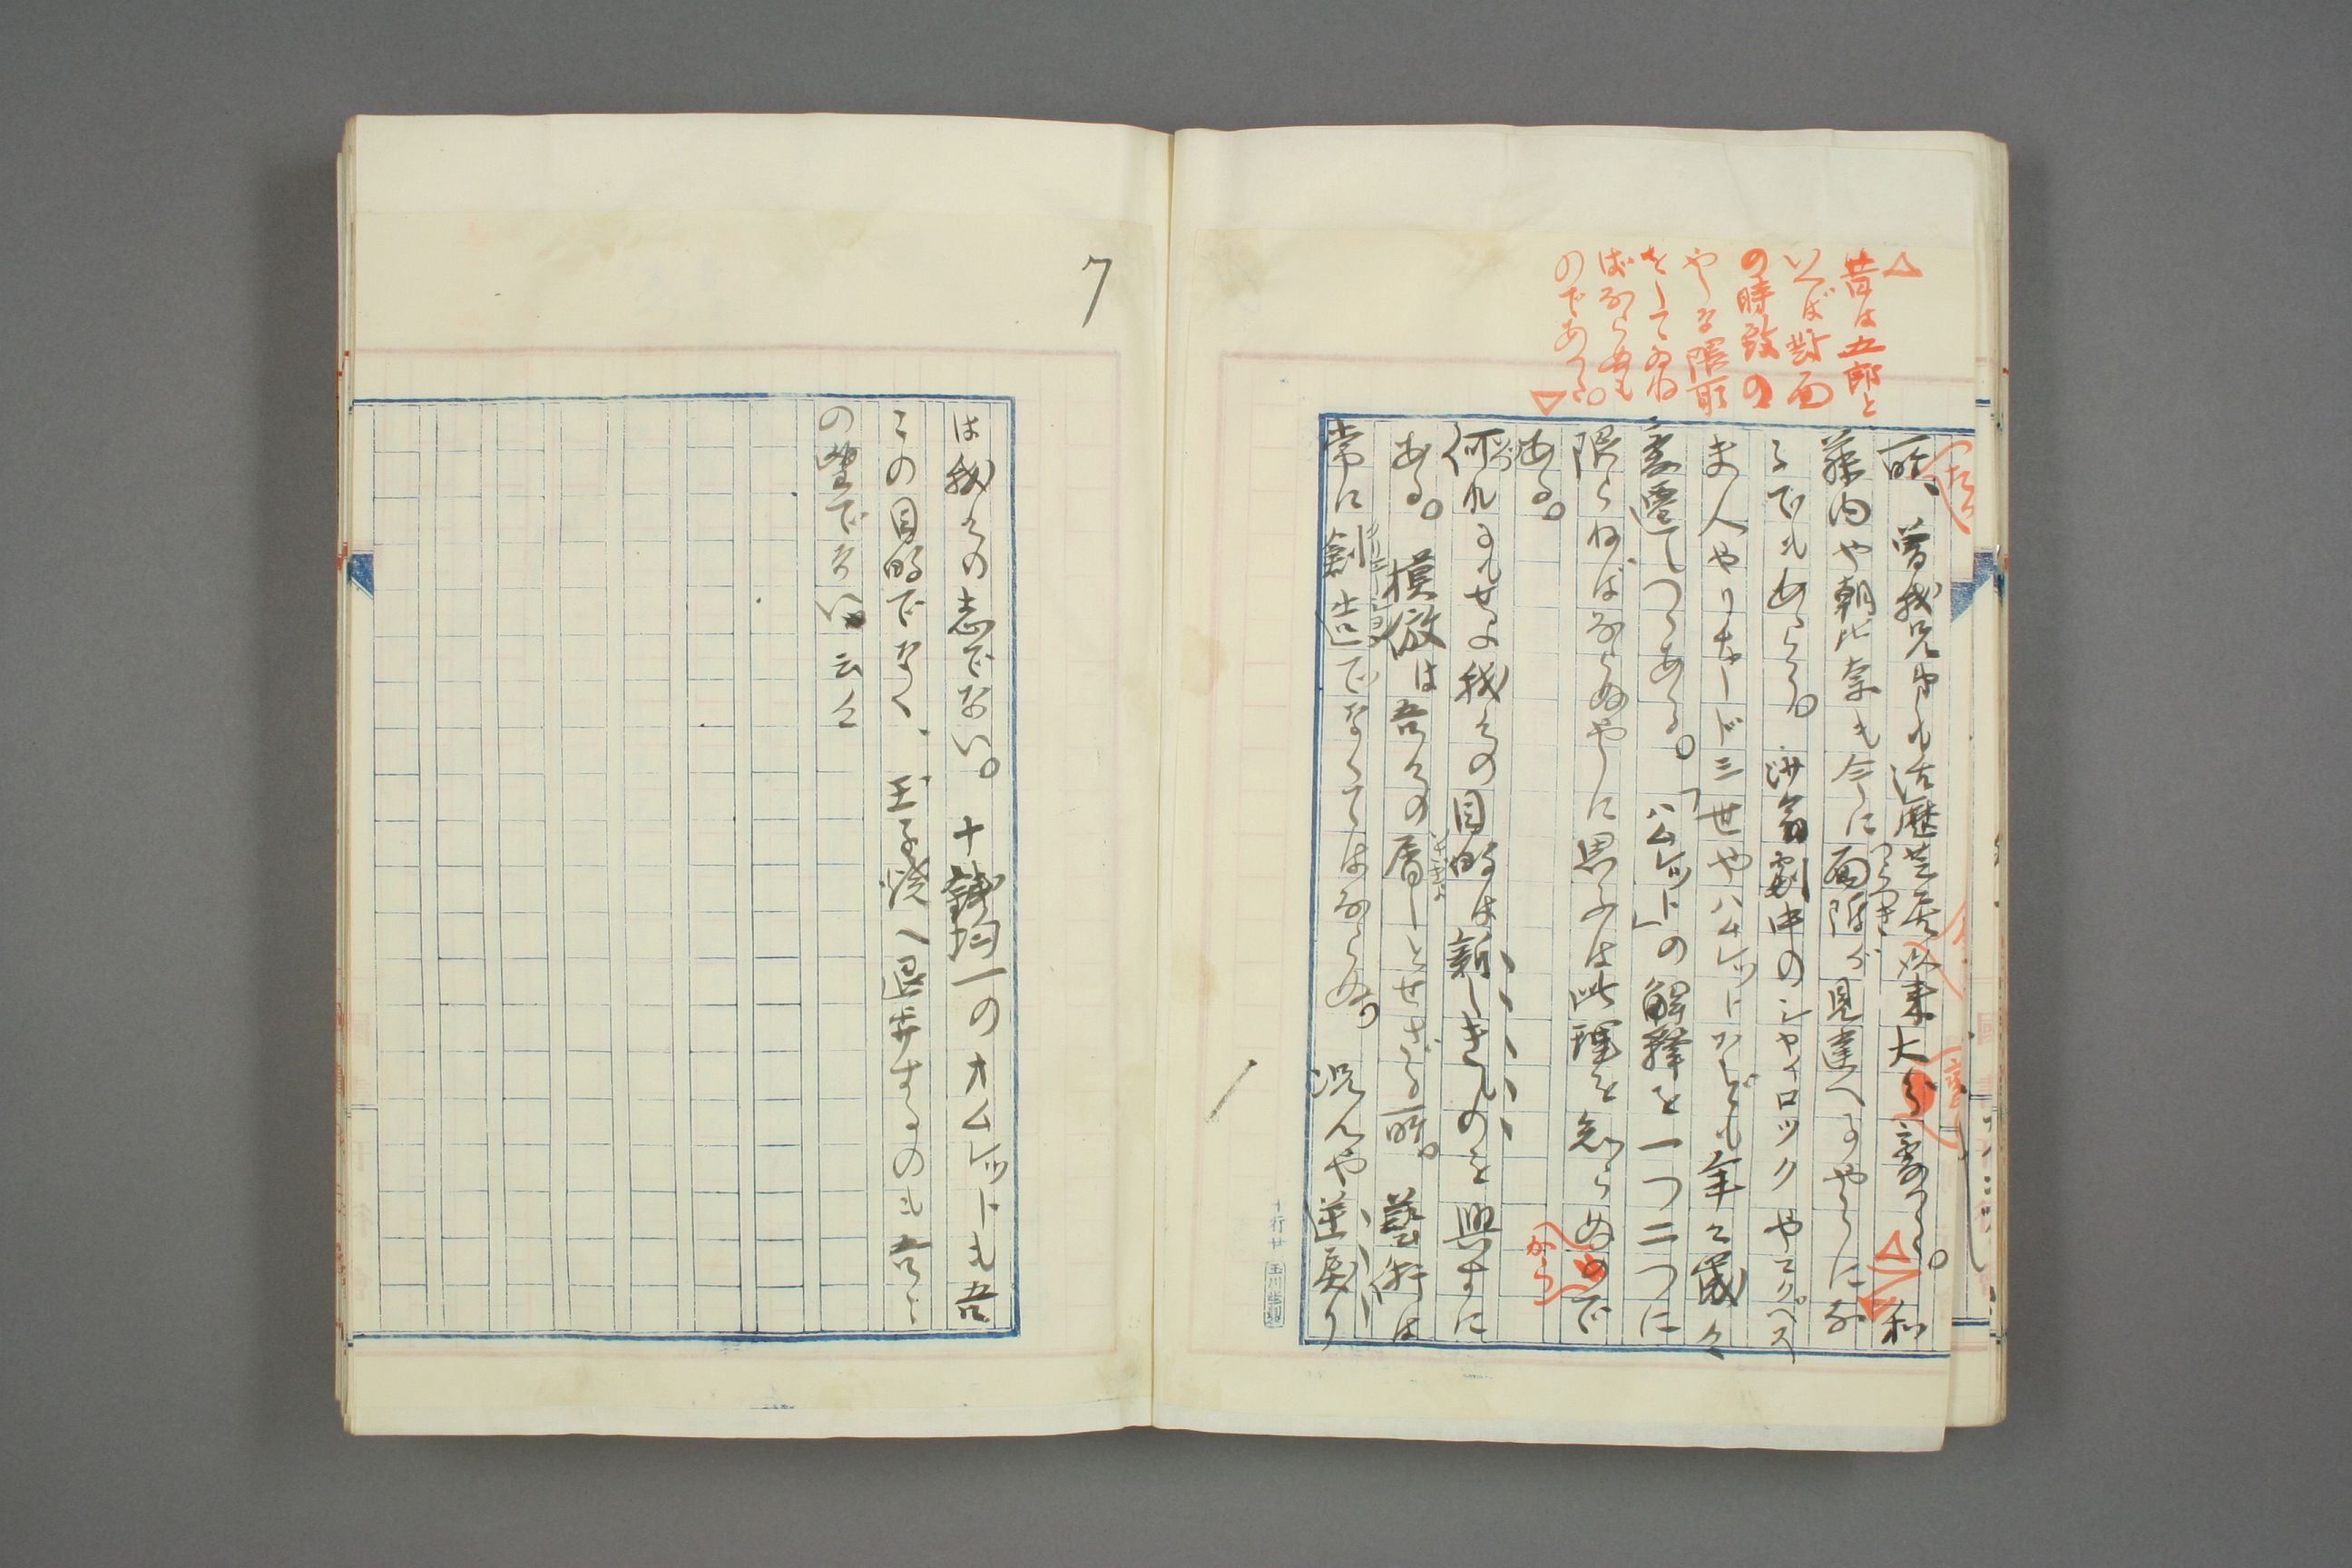 △
昔は五郎と
いへば對面
の時致の
やうな隈取
をしてゐね
ばならぬも
のであつた。
▽
所、曽我兄弟も活歴芝居以来大分変つた。和
藤内や朝比奈も今に面附が見違へるやうにな
つらつき
るでもあらう。沙翁劇中のシヤイロックやマクベス
夫人やリチャード三世やハムレットなども年々歳々
変遷しつゝある。「ハムレット」の解釋を一つ二つに
限らねばならぬやうに思ふは此理を知らぬので
から
ある。
何れにもせよ我々の目的は新しきものを興すに
いづ
ある。模倣は吾々の屑しとせざる所。藝術は
常に創造でなくてはならぬ。況んや逆戻り
十行廿
7
は我々の志でない。十銭均一のオムレットも吾
々の目的でなく、玉子焼へ退歩するのも吾々
の望でない。云々